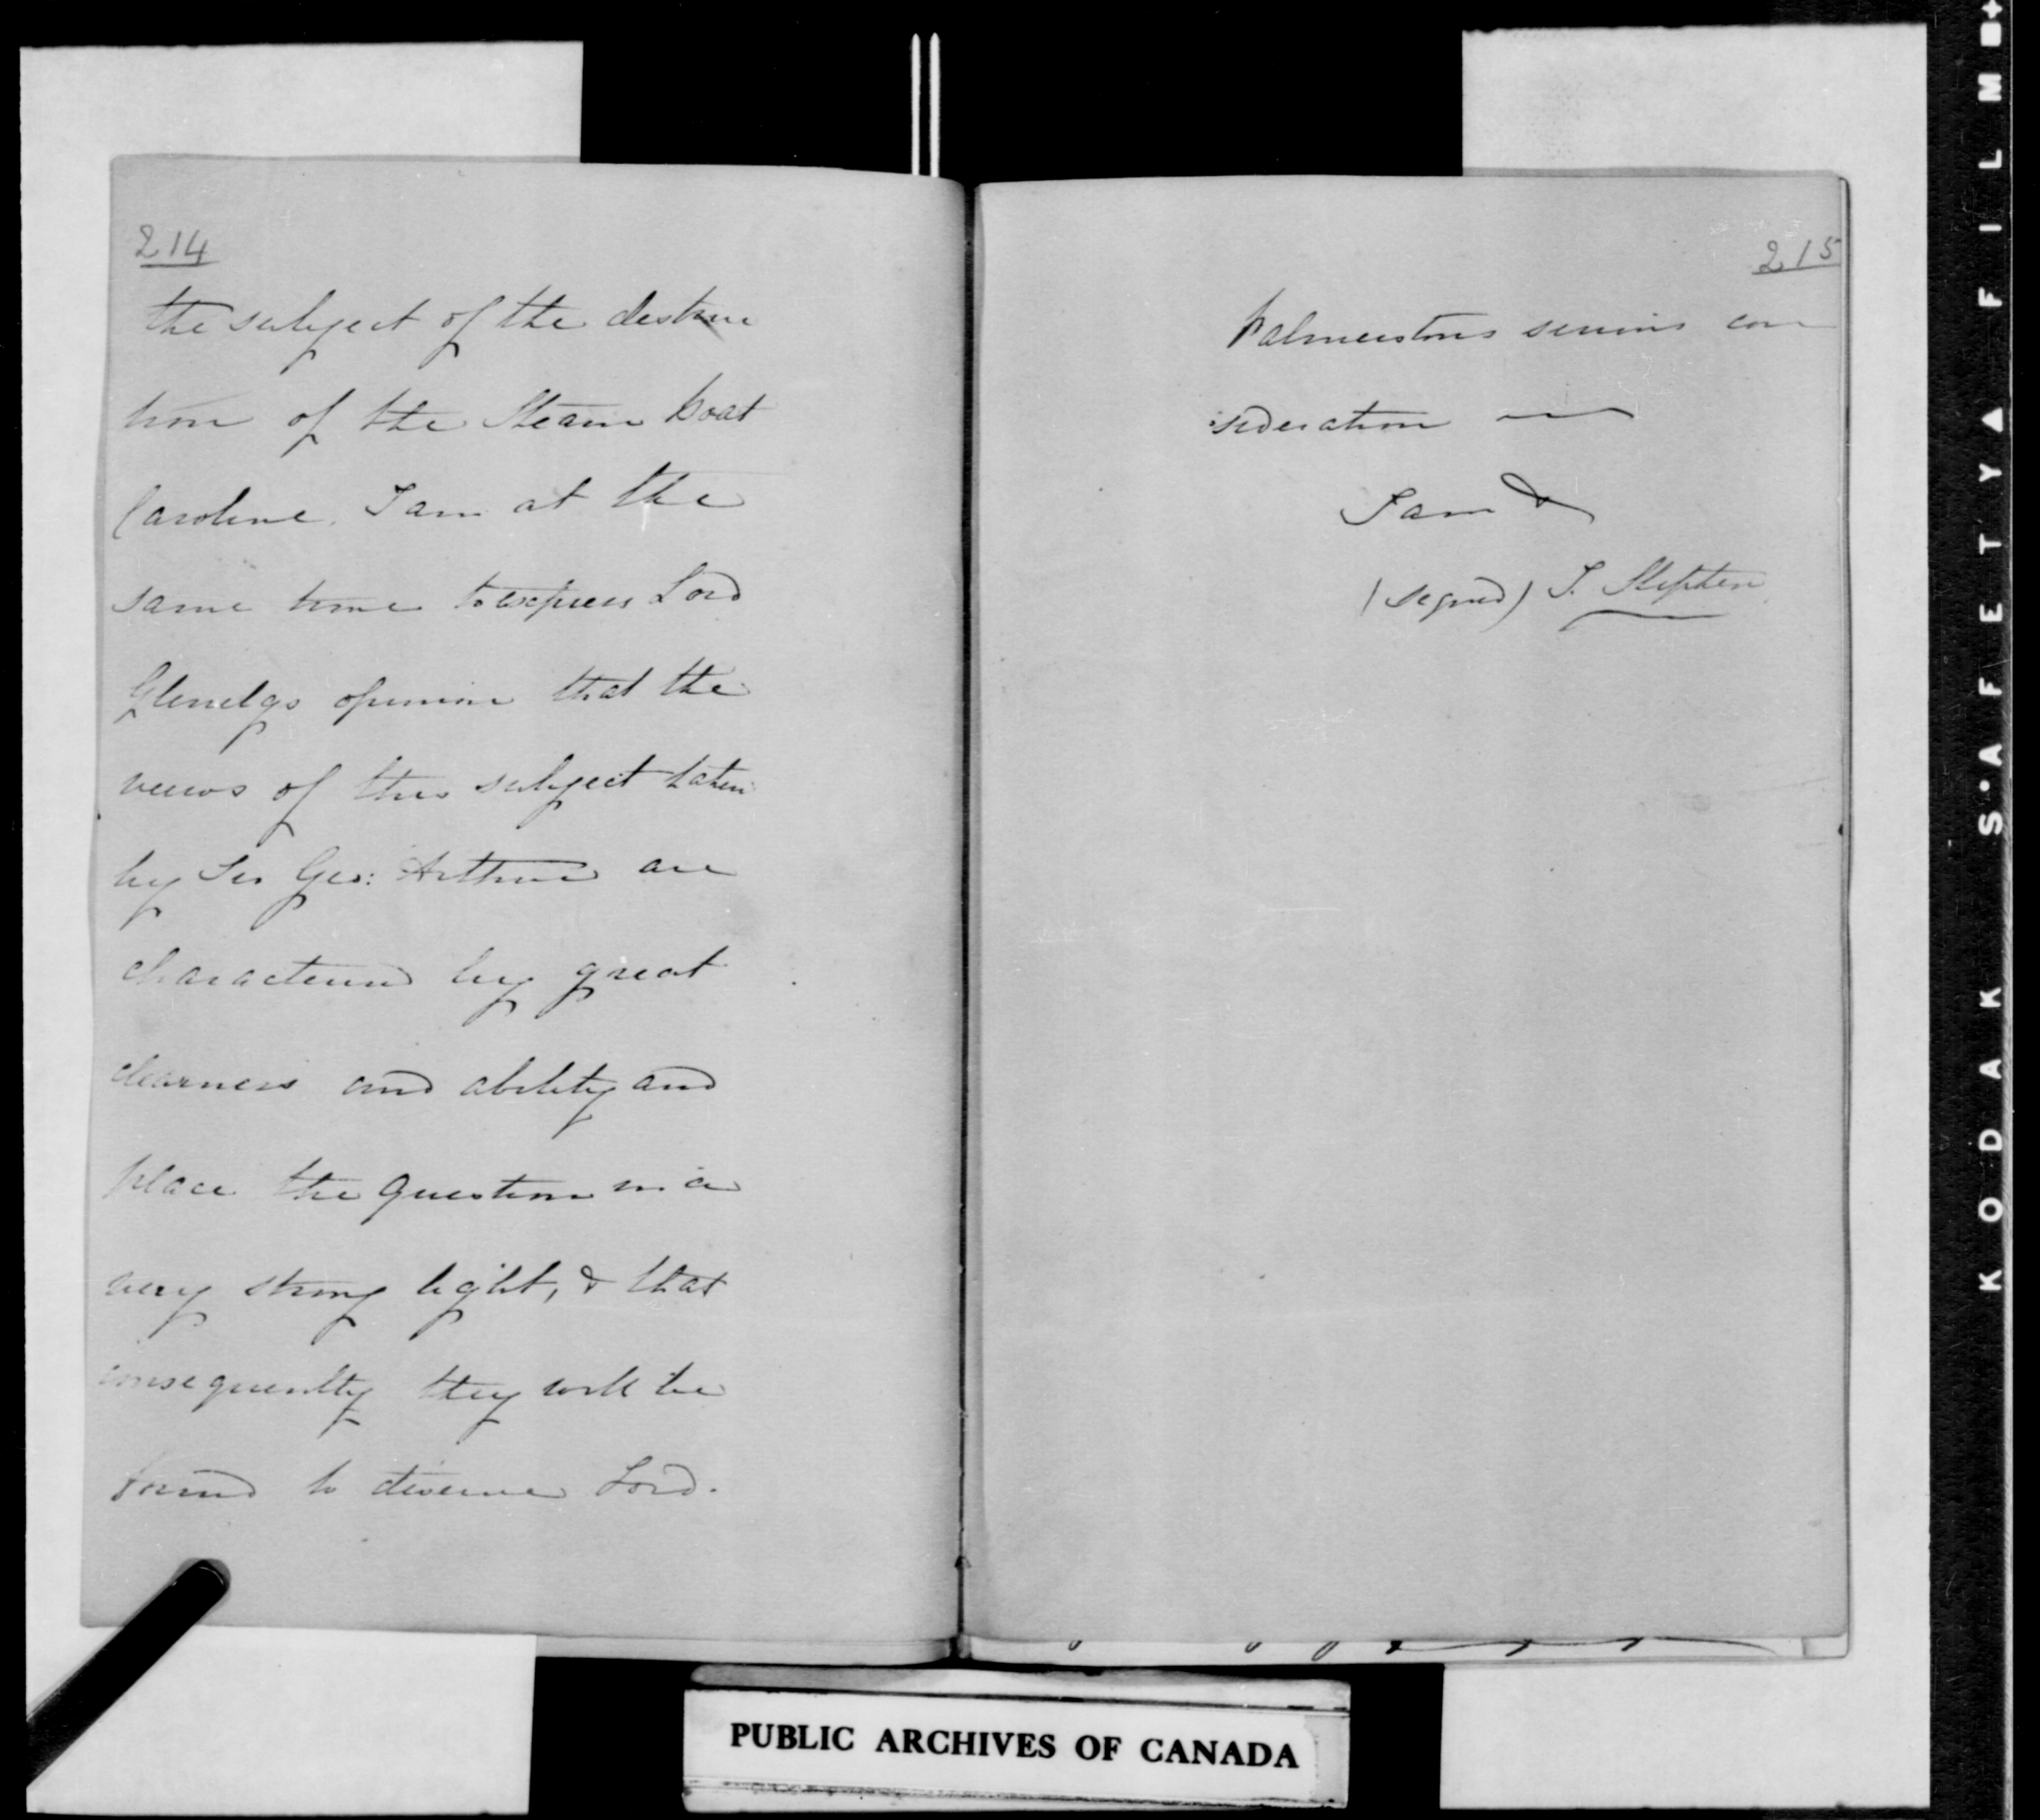 214
the subject of the destruc
tion of the Steam boat
Caroline. I am at the
same time to express Lord
Glenelgs opinion that the
views of this subject taken
by Sir Geo: Arthur are
characterized by great
clearness and ability and
place the question in a
very strong light, & that
consequently they will be
found to deserve Lord.
215
Palmerstons serious con
sideration
I am &
(signed) J. Stephen
PUBLIC ARCHIVES OF CANADA
KODAK SAFETY FILM